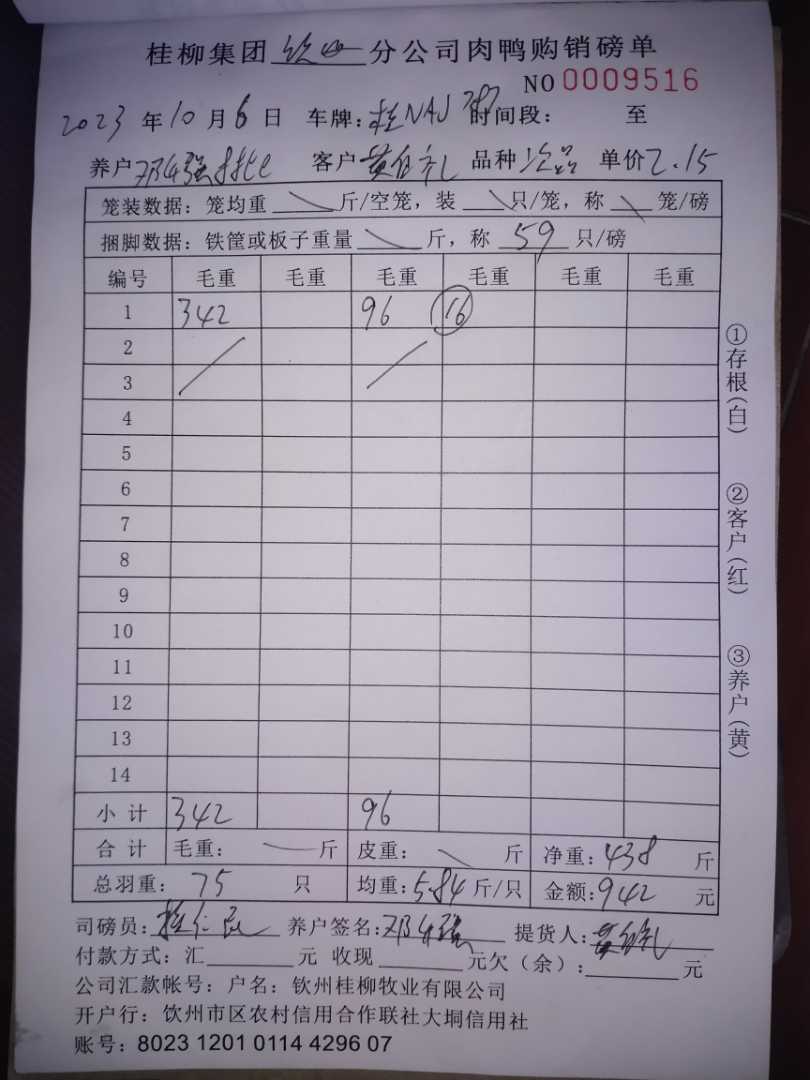 桂柳集团钦州分公司肉鸭购销磅单
NO 0009516
2023年10月6日 车牌:桂NAJ787 时间段: 至
养户 客户 品种次品 单价2.15
笼装数据:笼均重 斤/空笼,装 只/笼,称 笼/磅
捆脚数据:铁筐或板子重量 斤,称 59 只/磅
编号 毛重 毛重 毛重 毛重 毛重 毛重
1 342 96 16
2
3
4
5
6
7
8
9
10
11
12
13
14
小计 342 96
合计 毛重: 斤 皮重: 斤 净重:438 斤
总羽重:75 只 均重:5.84 斤/只 金额:942 元
司磅员: 养户签名: 提货人:
付款方式:汇 元 收现 元欠(余): 元
公司汇款帐号:户名:钦州桂柳牧业有限公司
开户行:钦州市区农村信用合作联社大垌信用社
账号:8023 1201 0114 4296 07
①存根(白)
②客户(红)
③养户(黄)